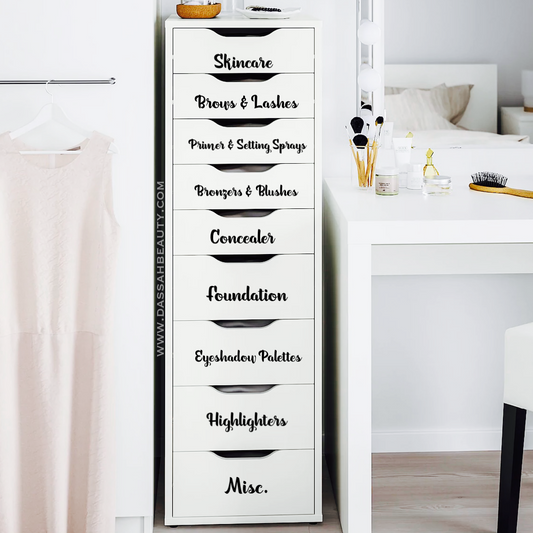 Skincare
Brows & Lashes
Primer & Setting Sprays
Bronzers & Blushes
Concealer
Foundation
Eyeshadow Palettes
Highlighters
Misc.
WWW.DASSAHBEAUTY.COM